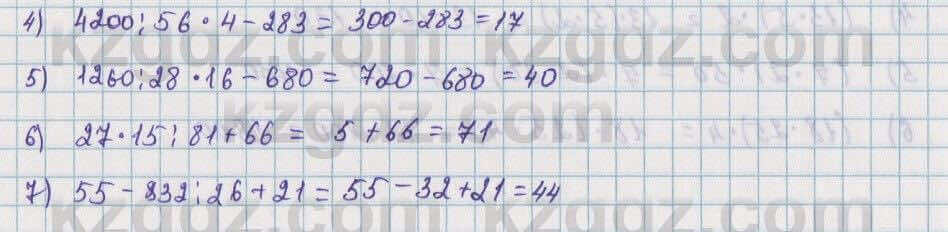 4) 4200 : 56 · 4 - 283 = 300 - 283 = 17
5) 1260 : 28 · 16 - 680 = 720 - 680 = 40
6) 27 · 15 : 81 + 66 = 5 + 66 = 71
7) 55 - 832 : 26 + 21 = 55 - 32 + 21 = 44
kzgdz.com